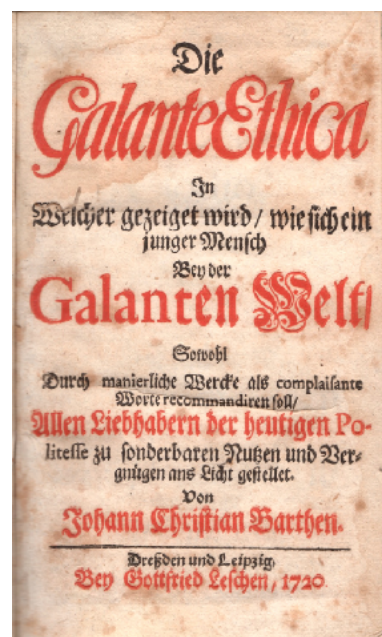 Die
Galante Ethica
In
Welcher gezeiget wird / wie sich ein
junger Mensch
Bey der
Galanten Welt /
Sowohl
Durch manierliche Wercke als complaisante
Worte recommandiren soll /
Allen Liebhabern der heutigen Po-
litesse zu sonderbaren Nutzen und Ver-
gnügen ans Licht gestellet.
Von
Johann Christian Barthen.
Dreßden und Leipzig,
Bey Gottfried Leschen, 1720